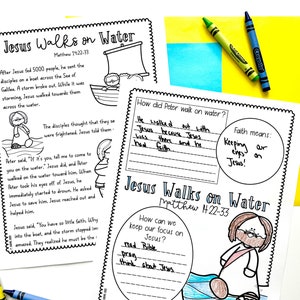 Jesus Walks on Water
Matthew 14:22-33
After Jesus fed 5000 people, he sent the
disciples on a boat across the Sea of
Galilee. A storm broke out. While it was
storming, Jesus walked towards them
across the water.
The disciples thought that they
were frightened. Jesus told them
Peter said, "If it's you, tell me to come to
you on the water." Jesus did, and Peter
walked on the water toward him. When
Peter took his eyes off of Jesus, he
immediately started to drown. He asked
Jesus to save him. Jesus reached out and
helped him.
Jesus said, "You have so little faith. Why
into the boat, and the storm stopped
amazed. They realized he must be the
How did Peter walk on water?
He walked out with
Jesus because Jesus
was there and he
had faith
Faith means:
Keeping our
eyes on
Jesus!
Jesus Walks on Water
Matthew 14:22-33
How can we
keep our focus on
Jesus?
read Bible
pray
think about Jesus